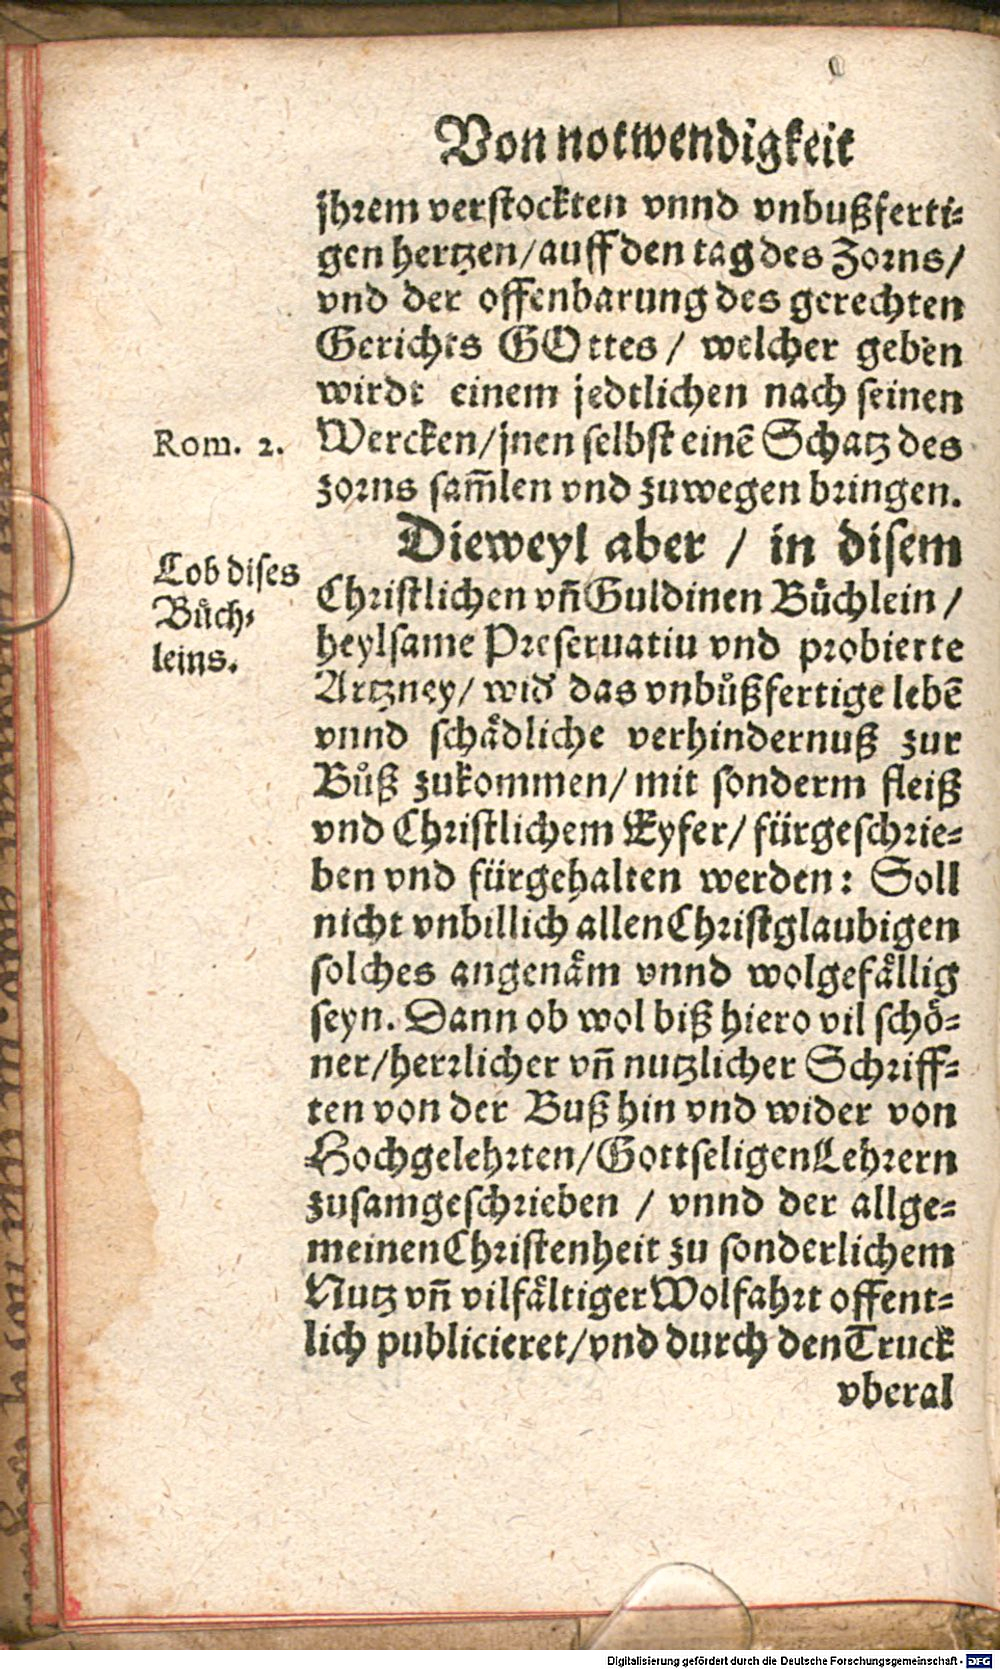 Von notwendigkeit
jhrem verstockten vnnd vnbußferti-
gen hertzen/auff den tag des Zorns/
vnd der offenbarung des gerechten
Gerichts GOttes/ welcher geben
wirdt einem jedtlichen nach seinen
Rom. 2.
Wercken/jnen selbst einē Schatz des
zorns sam̄len vnd zuwegen bringen.
Dieweyl aber / in disem
Lob dises
Christlichen vn̄ Guldinen Bůchlein /
Bůch-
heylsame Preseruatiu vnd probierte
leins.
Artzney/ wid' das vnbůßfertige lebē
vnnd schådliche verhindernuß zur
Bůß zukommen/ mit sonderm fleiß
vnd Christlichem Eyfer/ fürgeschrie-
ben vnd fürgehalten werden: Soll
nicht vnbillich allen Christglaubigen
solches angenåm vnnd wolgefållig
seyn. Dann ob wol biß hiero vil schö-
ner/herrlicher vn̄ nutzlicher Schriff-
ten von der Buß hin vnd wider von
Hochgelehrten/Gottseligen Lehrern
zusamgeschrieben / vnnd der allge-
meinen Christenheit zu sonderlichem
Nutz vn̄ vilfåltiger Wolfahrt offent-
lich publicieret/vnd durch den Truck
vberal
Digitalisierung gefördert durch die Deutsche Forschungsgemeinschaft - DFG